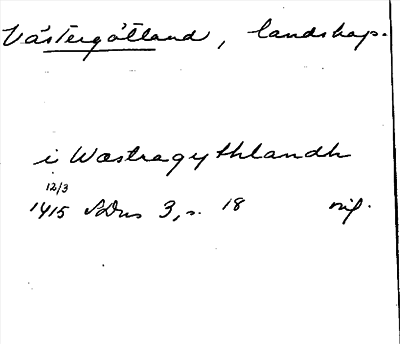 Västergötland, landskap.
i Wæstragythlandh
12/3
1415 SDns 3, s. 18 orig.